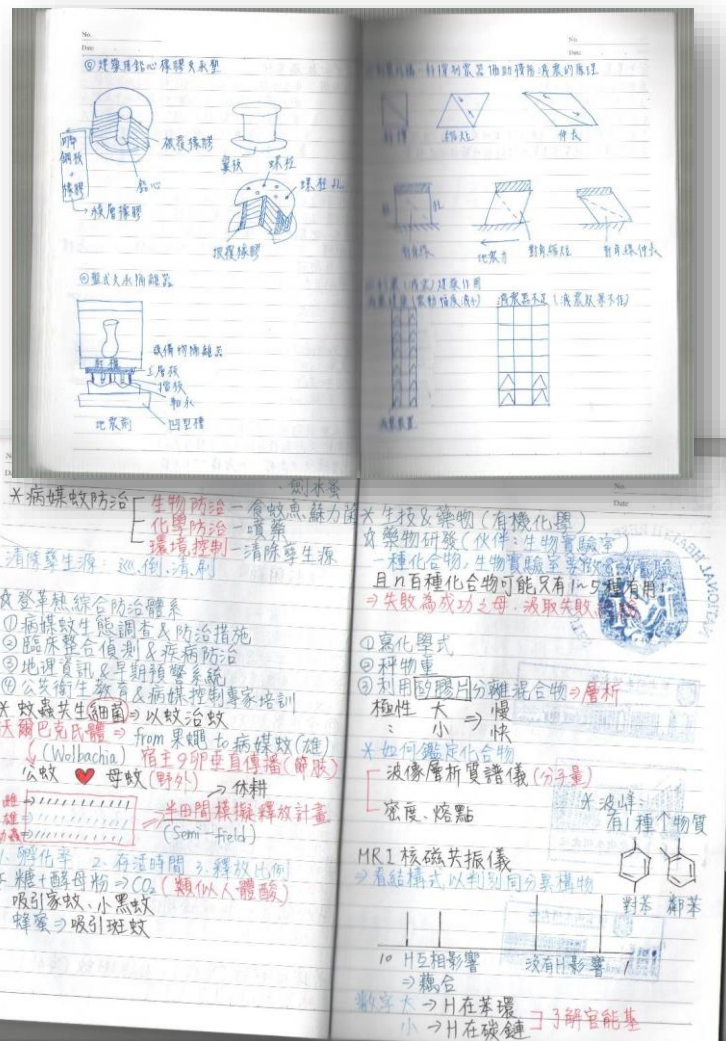 No.
Date
◎建築用鉛心橡膠支承墊
被覆橡膠
鋼板
+
橡膠
鉛心
積層橡膠
翼板
螺栓
螺栓孔
被覆橡膠
◎盤式支承隔離器
上層板
地震前
凹型槽
No.
Date
斜撐
縮短
伸長
對角線
地震力
對角線伸長
No.
Date
*病媒蚊防治
生物防治-食蚊魚、蘇力菌、劍水蚤
化學防治-噴藥
環境控制-清除孳生源
清除孳生源:巡、倒、清、刷
☆登革熱綜合防治體系
①病媒蚊生態調查&防治措施
②臨床整合偵測&疾病防治
③地理資訊&早期預警系統
④公共衛生教育&病媒控制專家培訓
*蚊蟲共生細菌⇒以蚊治蚊
沃爾巴克氏體⇒from果蠅to病媒蚊(雄)
(Wolbachia) 宿主♀卵垂直傳播(節肢)
公蚊 ♥ 母蚊(野外)
→休耕
雌
雄
⇒半田間模擬釋放計畫
(Semi-field)
1.孵化率 2.存活時間 3.釋放比例
糖+酵母粉⇒CO₂(類似人體酸)
吸引家蚊、小黑蚊
蜂蜜⇒吸引斑蚊
No.
Date
*生技&藥物(有機化學)
☆藥物研發(伙伴:生物實驗室)
一種化合物,生物實驗室
且n百種化合物可能只有1~5種有用
⇒失敗為成功之母,汲取失敗
①寫化學式
②秤物重
③利用矽膠片分離混合物⇒層析
極性 大 ⇒ 慢
: 小 快
*如何鑑定化合物
波像層析質譜儀(分子量)
密度、熔點
*波峰:
有1種個物質
MRI核磁共振儀
⇒看結構式以判別同分異構物
對苯 鄰苯
10 H互相影響 沒有H影響 1
⇒耦合
數字大→H在苯環
小→H在碳鏈
了解官能基